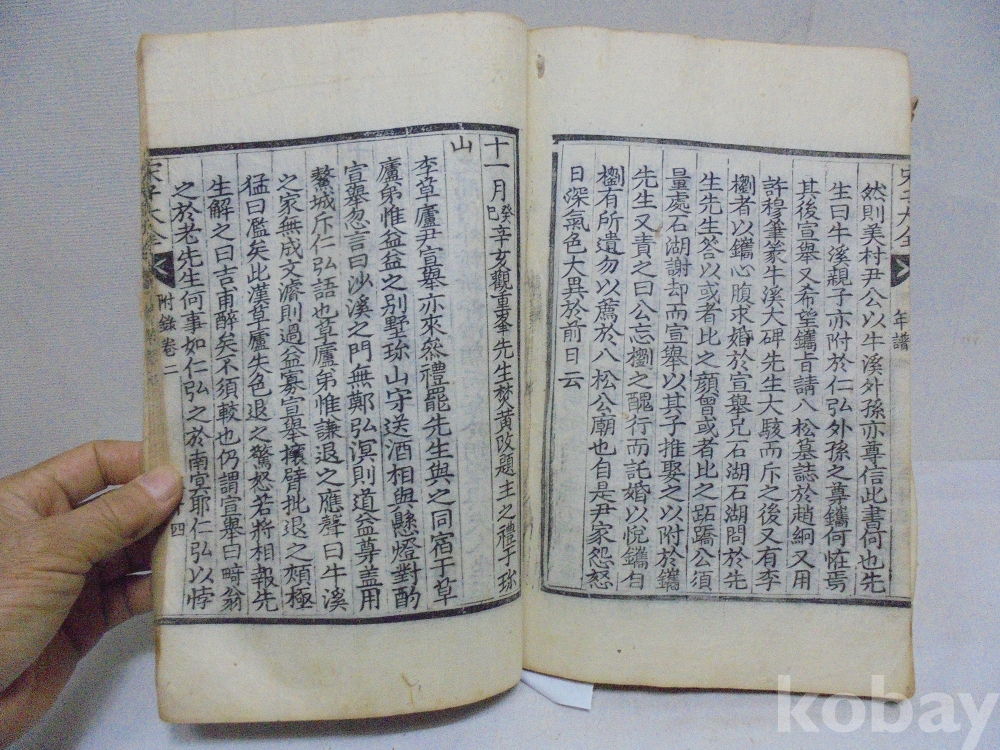 然則美村尹公以牛溪外孫亦尊信此書何也先
生曰牛溪親子亦附於仁弘外孫之尊鑴何怪焉
其後宣擧又希望鑴旨請八松墓誌於趙絅又用
許穆筆篆牛溪大碑先生大駭而斥之後又有李
橊者以鑴心腹求婚於宣擧兄石湖石湖問於先
生先生答以或者比之顔曾或者比之跖蹻公須
量處石湖謝却而宣擧以其子推娶之以附於鑴
先生又責之曰公忘橊之醜行而託婚以悅鑴自
橊有所遺勿以薦於八松公廟也自是尹家怨怒
日深氣色大异於前日云
年譜
十一月癸巳辛亥觀重峯先生焚黃改題主之禮于珎
山
李草廬尹宣擧亦來參禮罷先生與之同宿于草
廬弟惟益益之別墅珎山守送酒相與懸燈對酌
宣擧忽言曰沙溪之門無鄭弘溟則道益尊盖用
鰲城斥仁弘語也草廬弟惟謙退之應聲曰牛溪
之家無成文濬則過益寡宣擧攘臂批退之頰極
猛曰濫矣此漢草廬失色退之驚怒若將相報先
生解之曰吉甫醉矣不須較也仍謂宣擧曰畸翁
之於老先生何事如仁弘之於南冥耶仁弘以悖
宋子大全
附錄卷二
十四
kobay